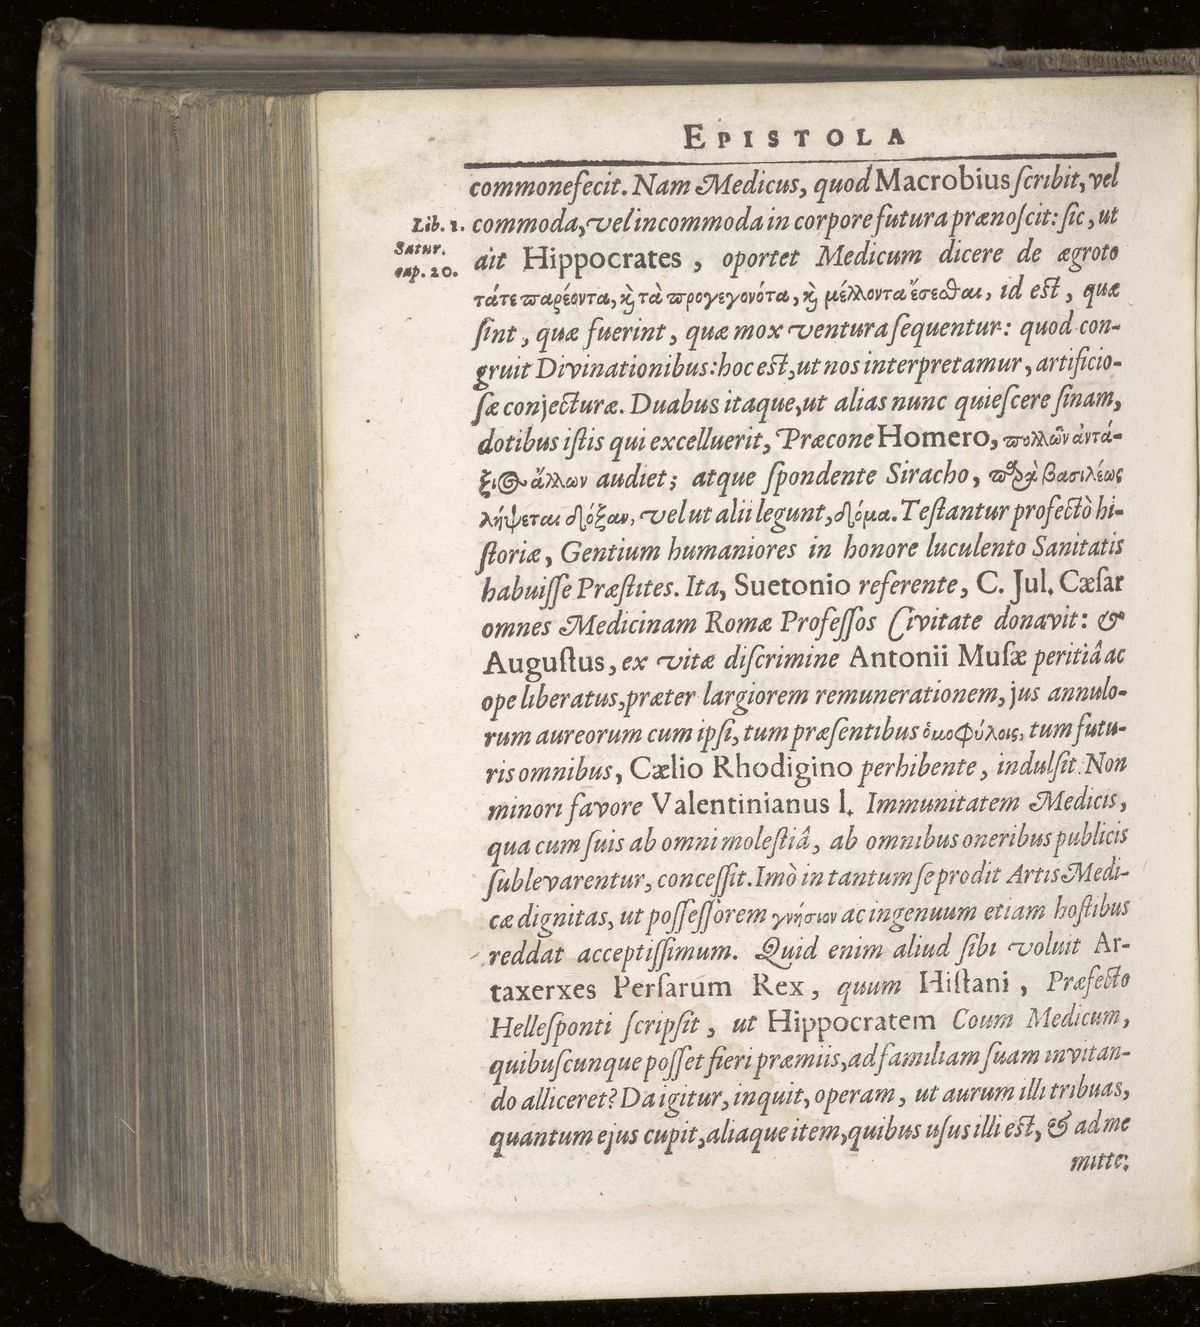 EPISTOLA
commonefecit. Nam Medicus, quod Macrobius ſcribit, vel
Lib. 1.
Satur.
cap. 20.
commoda, vel incommoda in corpore futura prænoſcit: ſic, ut
ait Hippocrates, oportet Medicum dicere de ægroto
τάτε παρέοντα, καὶ τὰ προγεγονότα, καὶ μέλλοντα ἔσεσθαι, id eſt, quæ
ſint, quæ fuerint, quæ mox ventura ſequentur: quod con-
gruit Divinationibus: hoc eſt, ut nos interpretamur, artificio-
ſæ conjecturæ. Duabus itaque, ut alias nunc quieſcere ſinam,
dotibus iſtis qui excelluerit, Præcone Homero, πολλῶν ἀντά-
ξιος ἄλλων audiet; atque ſpondente Siracho, παρὰ βασιλέως
λήψεται δόξαν, vel ut alii legunt, δόμα. Teſtantur profectò hi-
ſtoriæ, Gentium humaniores in honore luculento Sanitatis
habuiſſe Præſtites. Ita, Suetonio referente, C. Jul. Cæſar
omnes Medicinam Romæ Profeſſos Civitate donavit: &
Auguſtus, ex vitæ diſcrimine Antonii Muſæ peritiâ ac
ope liberatus, præter largiorem remunerationem, jus annulo-
rum aureorum cum ipſi, tum præſentibus ὁμοφύλοις, tum futu-
ris omnibus, Cælio Rhodigino perhibente, indulſit. Non
minori favore Valentinianus I. Immunitatem Medicis,
qua cum ſuis ab omni moleſtiâ, ab omnibus oneribus publicis
ſublevarentur, conceſſit. Imò in tantum ſe prodit Artis Medi-
cæ dignitas, ut poſſeſſorem γνήσιον ac ingenuum etiam hoſtibus
reddat acceptiſſimum. Quid enim aliud ſibi voluit Ar-
taxerxes Perſarum Rex, quum Hiſtani, Præfecto
Helleſponti ſcripſit, ut Hippocratem Coum Medicum,
quibuſcunque poſſet fieri præmiis, ad familiam ſuam invitan-
do alliceret? Da igitur, inquit, operam, ut aurum illi tribuas,
quantum ejus cupit, aliaque item, quibus uſus illi eſt, & ad me
mitte: